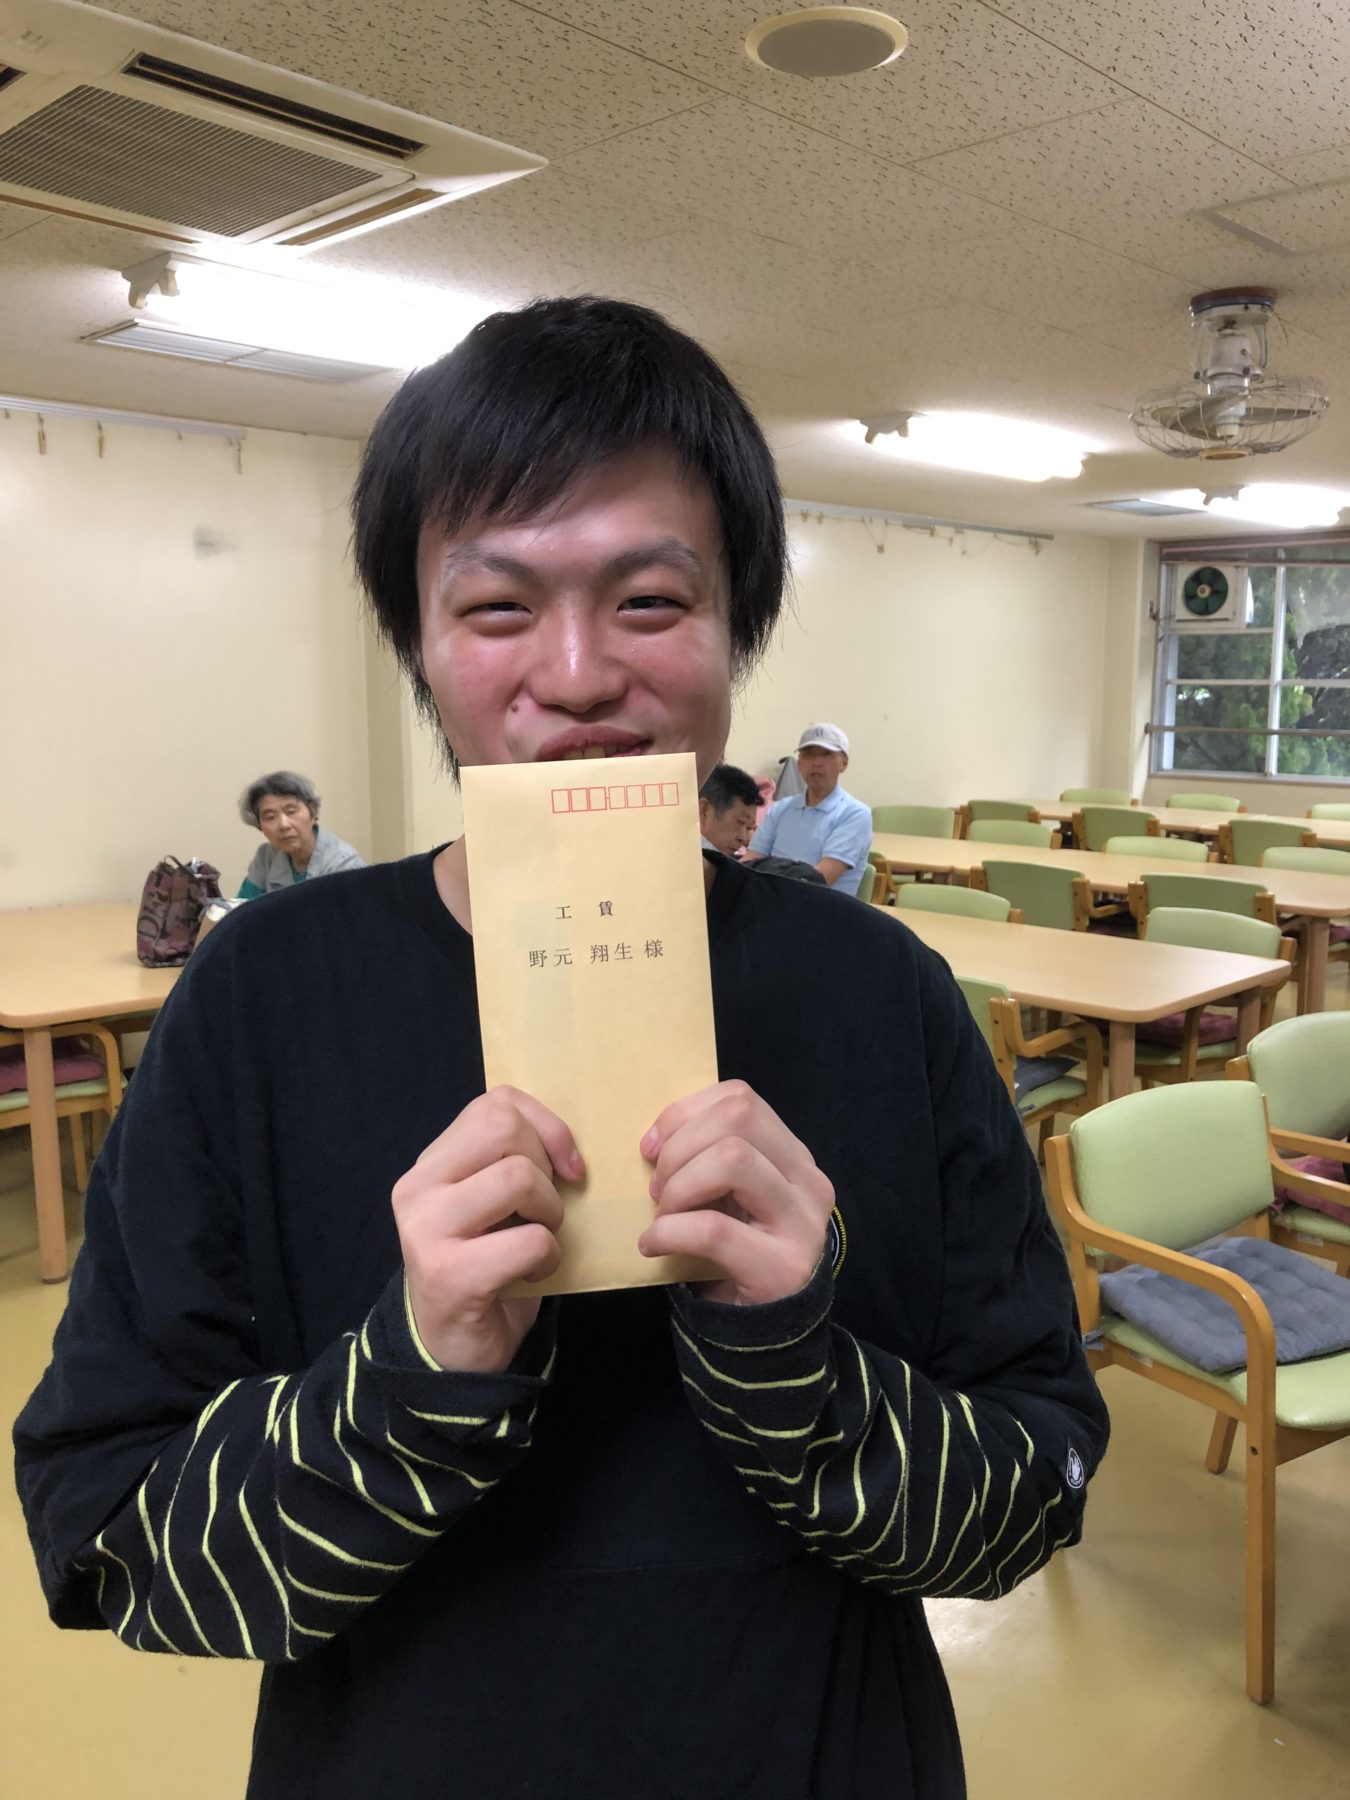 工 賃
野元 翔生 様